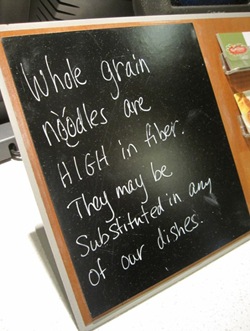 Whole grain
noodles are
HIGH in fiber.
They may be
Substituted in any
of our dishes.